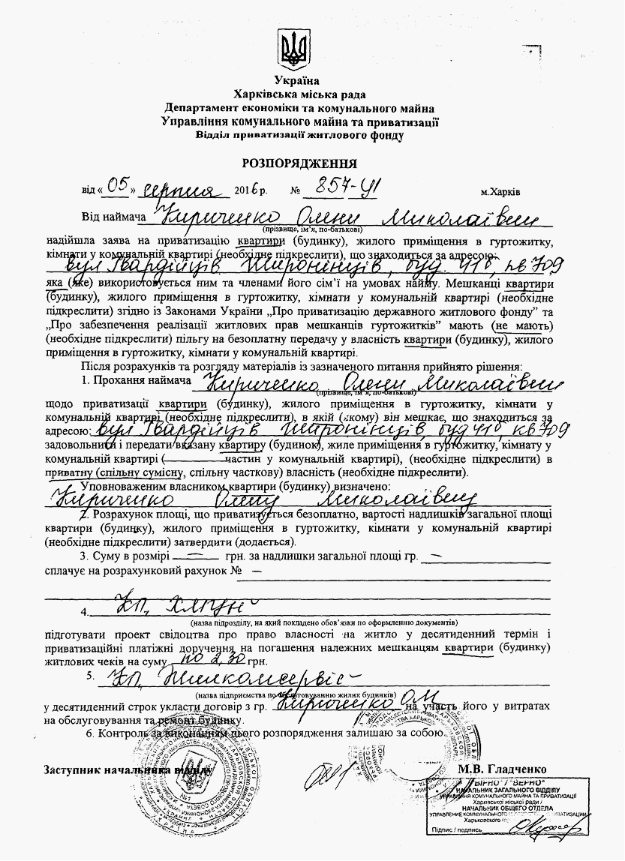 Україна
Харківська міська рада
Департамент економіки та комунального майна
Управління комунального майна та приватизації
Відділ приватизації житлового фонду
РОЗПОРЯДЖЕННЯ
від « 05 » серпня 2016 р. № 857-У1 м.Харків
Від наймача Кириченко Олени Миколаївни
(прізвище, ім'я, по-батькові)
надійшла заява на приватизацію квартири (будинку), жилого приміщення в гуртожитку,
кімнати у комунальній квартирі (необхідне підкреслити), що знаходиться за адресою:
вул Гвардійців Широнінців, буд. 41б, кв 709
яка (яке) використовується ним та членами його сім'ї на умовах найму. Мешканці квартири
(будинку), жилого приміщення в гуртожитку, кімнати у комунальній квартирі (необхідне
підкреслити) згідно із Законами України „Про приватизацію державного житлового фонду" та
„Про забезпечення реалізації житлових прав мешканців гуртожитків" мають (не мають)
(необхідне підкреслити) пільгу на безоплатну передачу у власність квартири (будинку), жилого
приміщення в гуртожитку, кімнати у комунальній квартирі.
Після розрахунків та розгляду матеріалів із зазначеного питання прийнято рішення:
1. Прохання наймача Кириченко Олени Миколаївни
(прізвище, ім'я, по-батькові)
щодо приватизації квартири (будинку), жилого приміщення в гуртожитку, кімнати у
комунальній квартирі (необхідне підкреслити), в якій (якому) він мешкає, що знаходиться за
адресою: вул Гвардійців Широнінців, буд 41б, кв 709
задовольнити і передати вказану квартиру (будинок), жиле приміщення в гуртожитку, кімнату у
комунальній квартирі (— частин у комунальній квартирі), (необхідне підкреслити) в
приватну (спільну сумісну, спільну часткову) власність (необхідне підкреслити).
Уповноваженим власником квартири (будинку) визначено:
Кириченко Олену Миколаївну
2. Розрахунок площі, що приватизується безоплатно, вартості надлишків загальної площі
квартири (будинку), жилого приміщення в гуртожитку, кімнати у комунальній квартирі
(необхідне підкреслити) затвердити (додається).
3. Суму в розмірі — грн. за надлишки загальної площі гр. —
сплачує на розрахунковий рахунок № —
4. КП,
(назва підрозділу, на який покладено обов'язки по оформленню документів)
підготувати проект свідоцтва про право власності на житло у десятиденний термін і
приватизаційні платіжні доручення на погашення належних мешканцям квартири (будинку)
житлових чеків на суму по 2,30 грн.
5. КП, Жилкомсервіс
(назва підприємства по обслуговуванню жилих будинків)
у десятиденний строк укласти договір з гр. Кириченко О.М на участь його у витратах
на обслуговування та ремонт будинку.
6. Контроль за виконанням цього розпорядження залишаю за собою.
Заступник начальника відділу М.В. Гладченко
"ВІРНО"/"ВЕРНО"
НАЧАЛЬНИК ЗАГАЛЬНОГО ВІДДІЛУ
УПРАВЛІННЯ КОМУНАЛЬНОГО МАЙНА ТА ПРИВАТИЗАЦІЇ
Харківської міської ради /
НАЧАЛЬНИК ОБЩЕГО ОТДЕЛА
Підпис / подпись